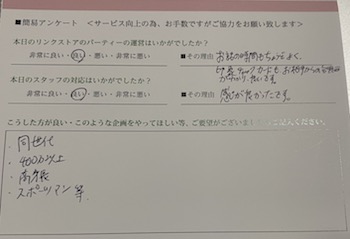 ■簡易アンケート ＜サービス向上の為、お手数ですがご協力をお願い致します＞
本日のリンクストアのパーティーの運営はいかがでしたか?
非常に良い・良い・悪い・非常に悪い
■その理由 お話の時間もちょうどよく、
カードもお相手からの
がわかり、良いです。
本日のスタッフの対応はいかがでしたか?
非常に良い・良い・悪い・非常に悪い
■理由 感じが良かったです。
こうした方が良い・このような企画をやってほしい等、ご要望がございましたらご記入ください。
・同世代
・400万以上
・高身長
・スポーツマン 等